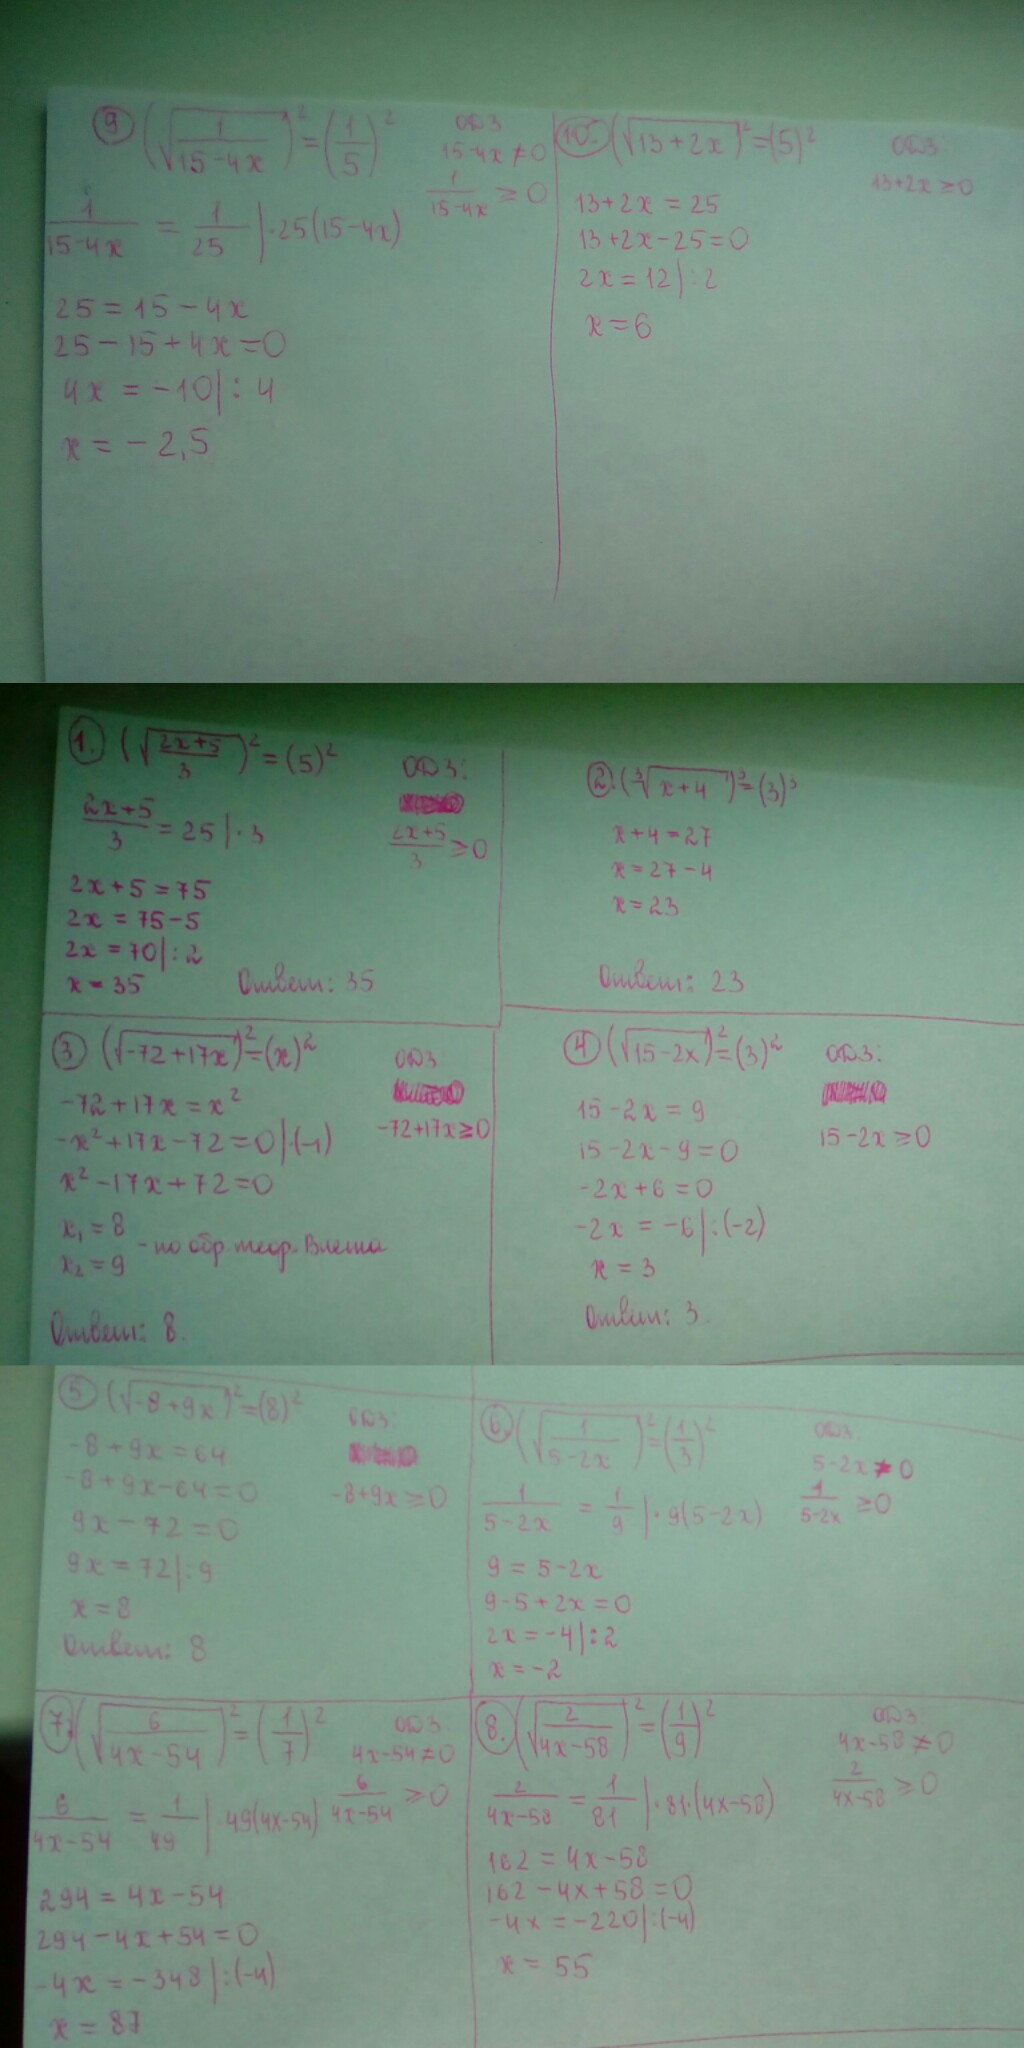 9 (√(1/(15-4x)))² = (1/5)²
ОДЗ
15-4x ≠ 0
1/(15-4x) ≥ 0
1/(15-4x) = 1/25 | ·25(15-4x)
25 = 15 - 4x
25 - 15 + 4x = 0
4x = -10 | : 4
x = -2,5
10. (√(13+2x))² = (5)²
ОДЗ:
13+2x ≥ 0
13+2x = 25
13+2x-25=0
2x = 12 | : 2
x = 6
1. (√((2x+5)/3))² = (5)²
ОДЗ:
(2x+5)/3 ≥ 0
(2x+5)/3 = 25 | · 3
2x + 5 = 75
2x = 75 - 5
2x = 70 | : 2
x = 35
Ответ: 35
2. (³√(x+4))³ = (3)³
x + 4 = 27
x = 27 - 4
x = 23
Ответ: 23
3 (√(-72+17x))² = (x)²
ОДЗ
-72+17x ≥ 0
-72 + 17x = x²
-x² + 17x - 72 = 0 | ·(-1)
x² - 17x + 72 = 0
x₁ = 8
x₂ = 9
- по обр теор. Виета
Ответ: 8.
4 (√(15-2x))² = (3)²
ОДЗ:
15 - 2x ≥ 0
15 - 2x = 9
15 - 2x - 9 = 0
-2x + 6 = 0
-2x = -6 | : (-2)
x = 3
Ответ: 3.
5 (√(-8+9x))² = (8)²
ОДЗ:
-8+9x ≥ 0
-8 + 9x = 64
-8 + 9x - 64 = 0
9x - 72 = 0
9x = 72 | : 9
x = 8
Ответ: 8
6. (√(1/(5-2x)))² = (1/3)²
ОДЗ
5-2x ≠ 0
1/(5-2x) ≥ 0
1/(5-2x) = 1/9 | · 9(5-2x)
9 = 5-2x
9-5+2x = 0
2x = -4 | : 2
x = -2
7. (√(6/(4x-54)))² = (1/7)²
ОДЗ
4x-54 ≠ 0
6/(4x-54) ≥ 0
6/(4x-54) = 1/49 | 49(4x-54)
294 = 4x - 54
294 - 4x + 54 = 0
-4x = -348 | : (-4)
x = 87
8. (√(2/(4x-58)))² = (1/9)²
ОДЗ.
4x-58 ≠ 0
2/(4x-58) ≥ 0
2/(4x-58) = 1/81 | · 81·(4x-58)
162 = 4x-58
162 - 4x + 58 = 0
-4x = -220 | : (-4)
x = 55